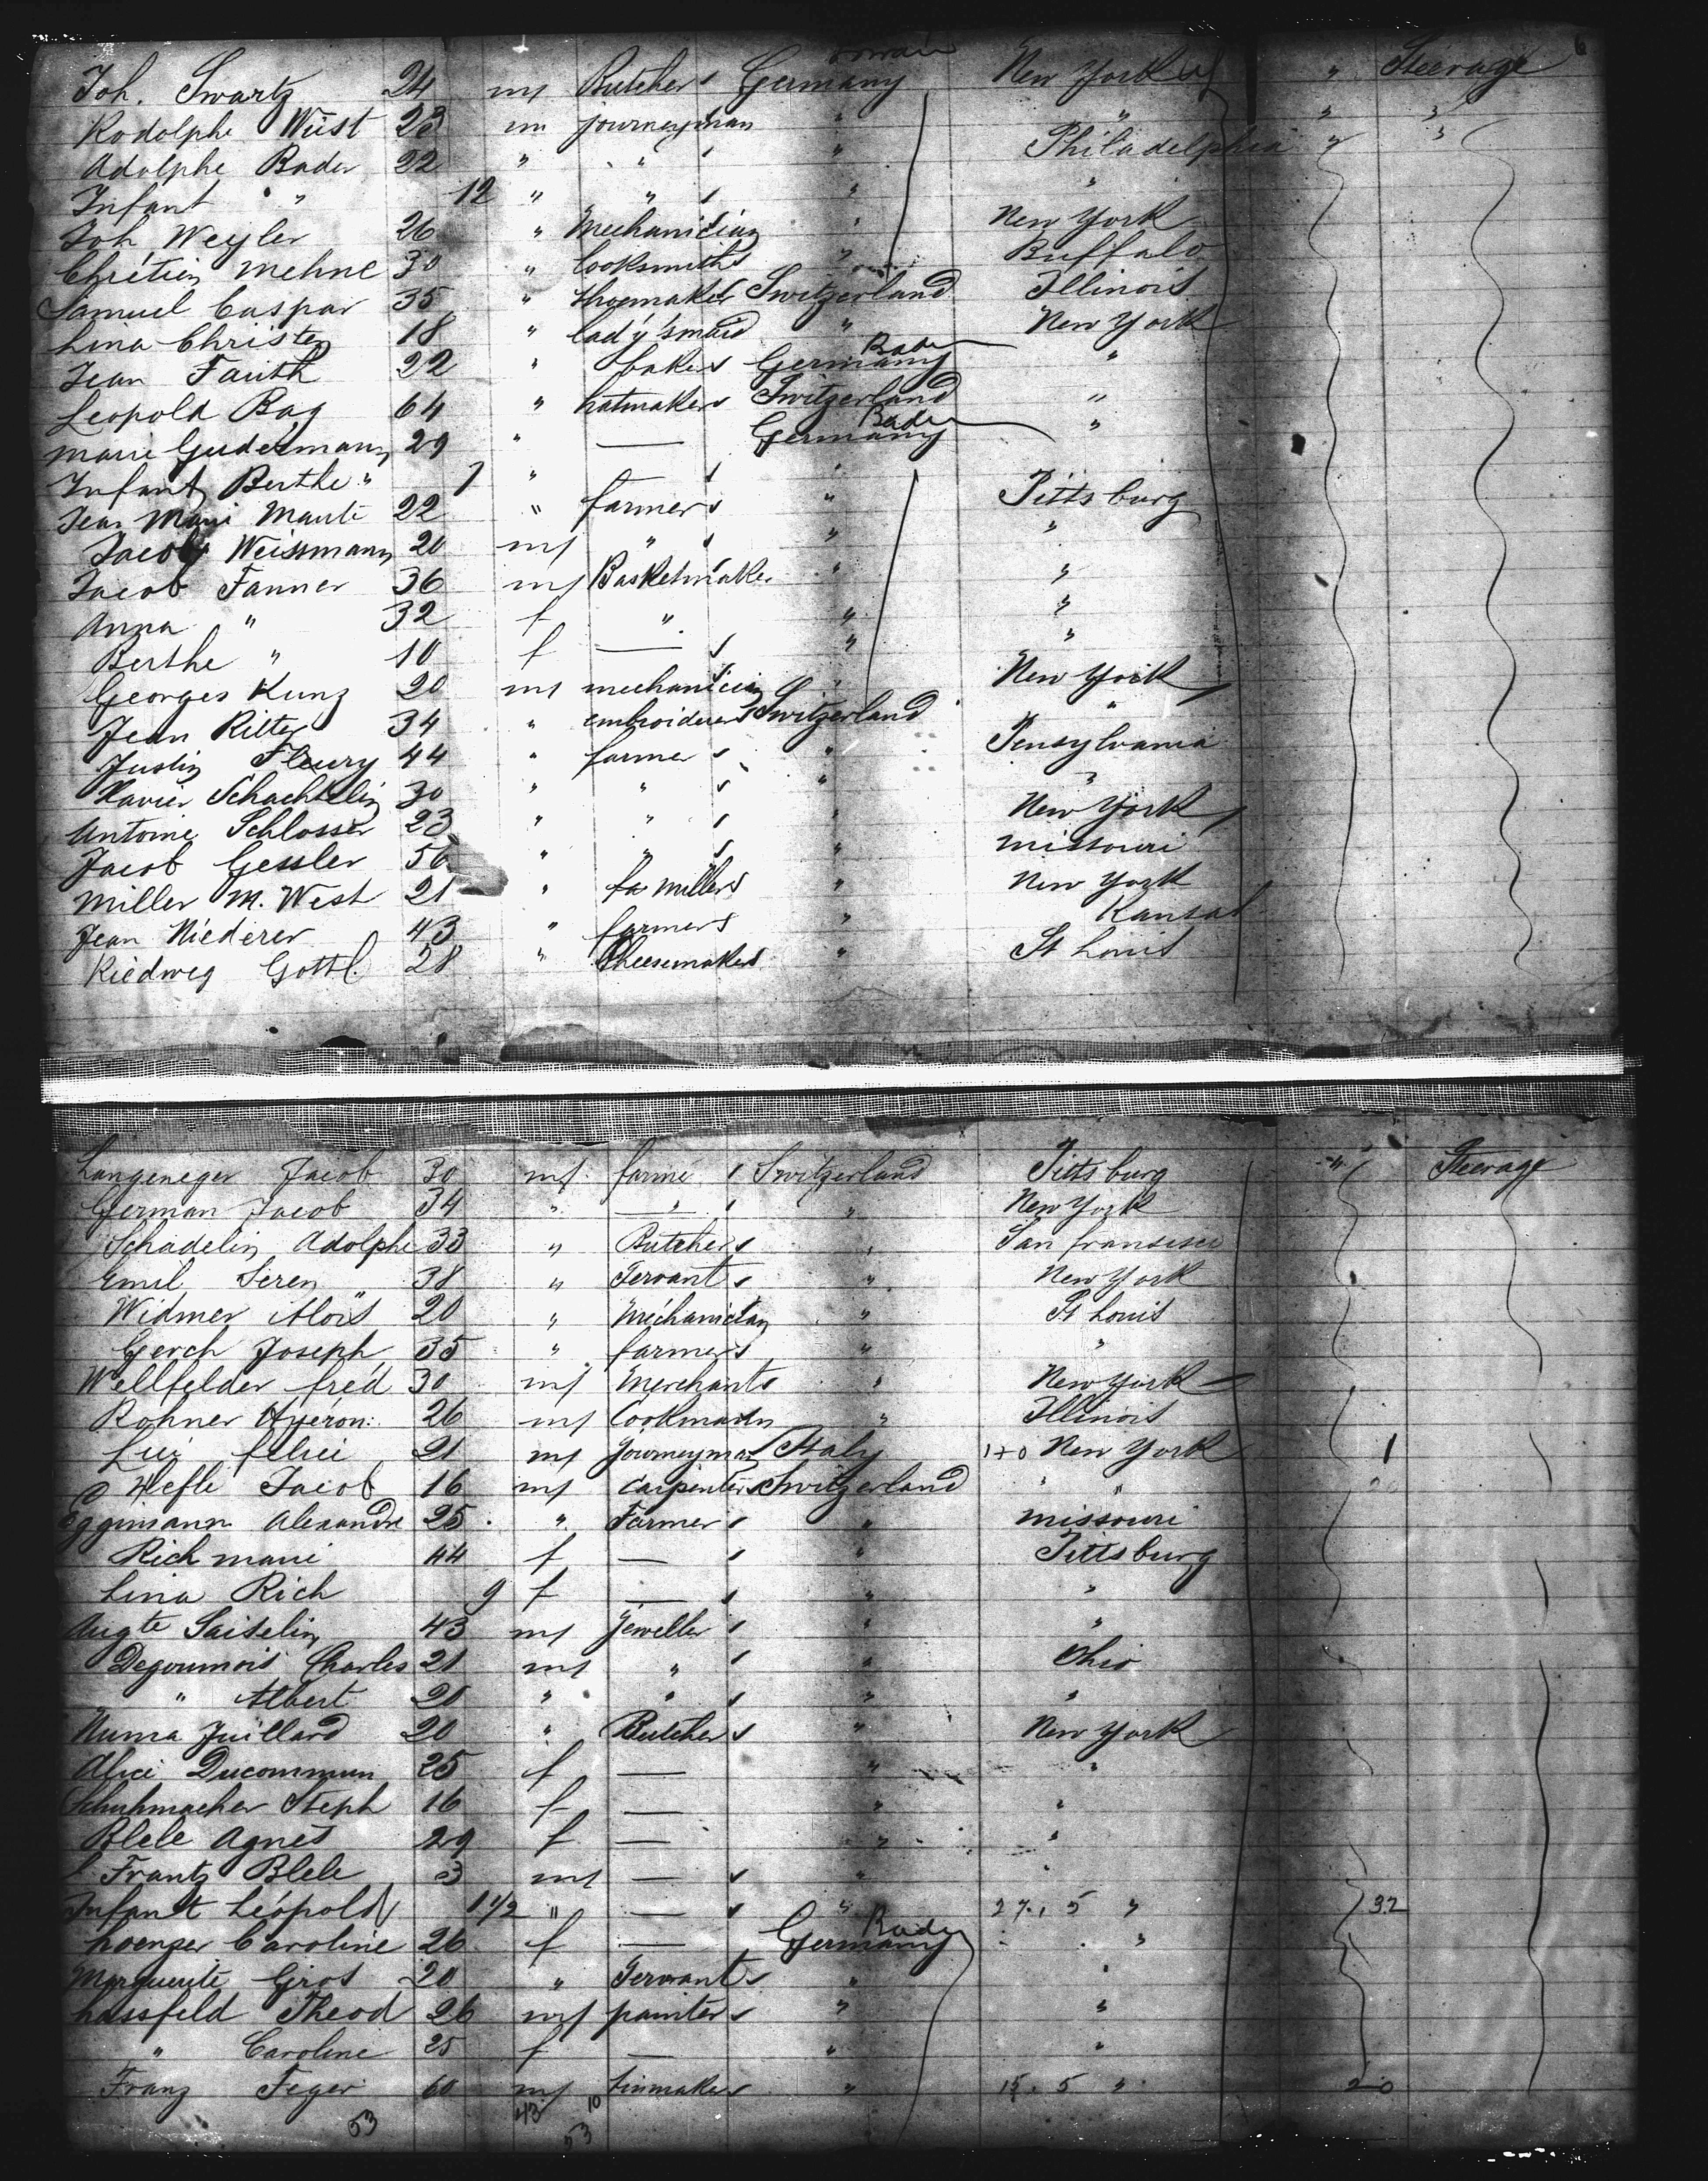 Joh. Swartz 24 m Butcher Germany New York " Steerage 6
Rodolphe Wüst 23 m journeyman " " " "
Adolphe Bader 22 " " " Philadelphia " "
Infant " 12 " " " "
Joh Weyler 26 " Mechanician " New York
Chrétien Mehne 30 " Locksmiths " Buffalo
Samuel Caspar 35 " Shoemaker Switzerland Illinois
Lina Christen 18 " lady'smaid " New York
Jean Fauth 22 " bakers Germany Baden "
Leopold Bag 64 " hatmakers Switzerland "
Marie Gudermann 29 " — Germany Baden "
Infant Berthe " 7 " "
Jean Marie Mauté 22 " farmers " Pittsburg
Jacob Weissmann 20 m " " "
Jacob Fanner 36 m Basketmaker " "
Anna " 32 f " " "
Berthe " 10 f — " "
Georges Kunz 20 m mechanician " New York
Jean Ritter 34 " embroiderers Switzerland "
Justin Fleury 44 " farmer " Pensylvania
Xavier Schachtelin 30 " " " "
Antoine Schlosser 23 " " " New York
Jacob Gessler 56 " " " Missouri
Miller M. West 21 " fa millers " New York
Jean Niederer 43 " farmers " Kansas
Riedweg Gottl. 28 " Cheesemakers " St Louis
Langeneger Jacob 30 m farme Switzerland Pittsburg " Steerage
German Jacob 34 " " " New York
Schadelin Adolphe 33 " Butchers " San fransisco
Emil Seren 38 " Servants " New York
Widmer Aloïs 20 " Méchanician " St Louis
Gerch Joseph 35 " farmers " "
Wellfelder fréd 30 m Merchants " New York
Rohner Hyéron: 26 m Cookmaids " Illinois
Lui felici 21 m journeyman Italy 170 New York 1
Hefle Jacob 16 m Carpenters Switzerland " "
Eggimann Alexandre 25 " Farmer " Missouri
Rich marie 44 f — " Pittsburg
Lina Rich 9 f — " "
Augte Saiselin 43 m Jeweller " "
Degoumois Charles 21 m " " Ohio
" Albert 20 " " " "
Numa Juillard 20 " Butchers " New York
Alice Ducommun 25 f — " "
Schuhmacher Steph 16 f — " "
Blele Agnès 29 f — " "
Frantz Blele 3 m — " "
Infant Léopold 1 1/2 " — " 27. 5 " 32
Loenger Caroline 26 f — Germany Baden "
Marguerite Gros 20 " Servants " "
Lassfeld Théod 26 m painters " "
" Caroline 25 f — " "
Franz Feger 60 m tinmakers " 15. 5 " 20
53 43 10
53